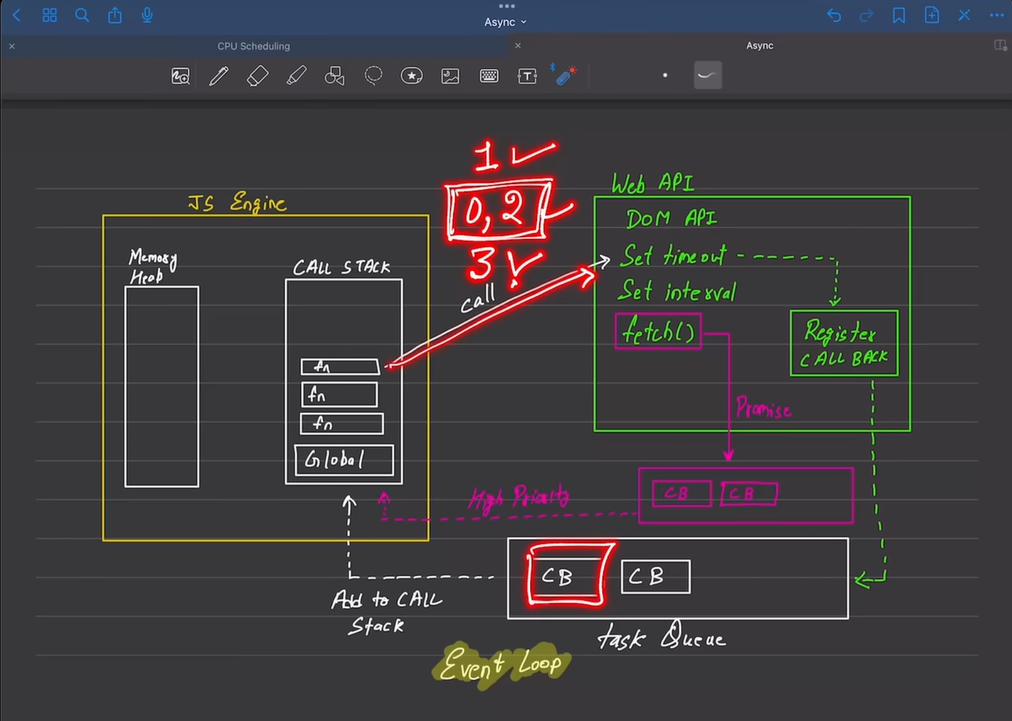 Async
CPU Scheduling
Async
T
1
0, 2
3
call
JS Engine
Memory
Heap
CALL STACK
fn
fn
fn
Global
Web API
DOM API
Set timeout
Set interval
fetch()
Register
CALL BACK
Promise
High Priority
CB
CB
CB
CB
Add to CALL
Stack
task Queue
Event Loop